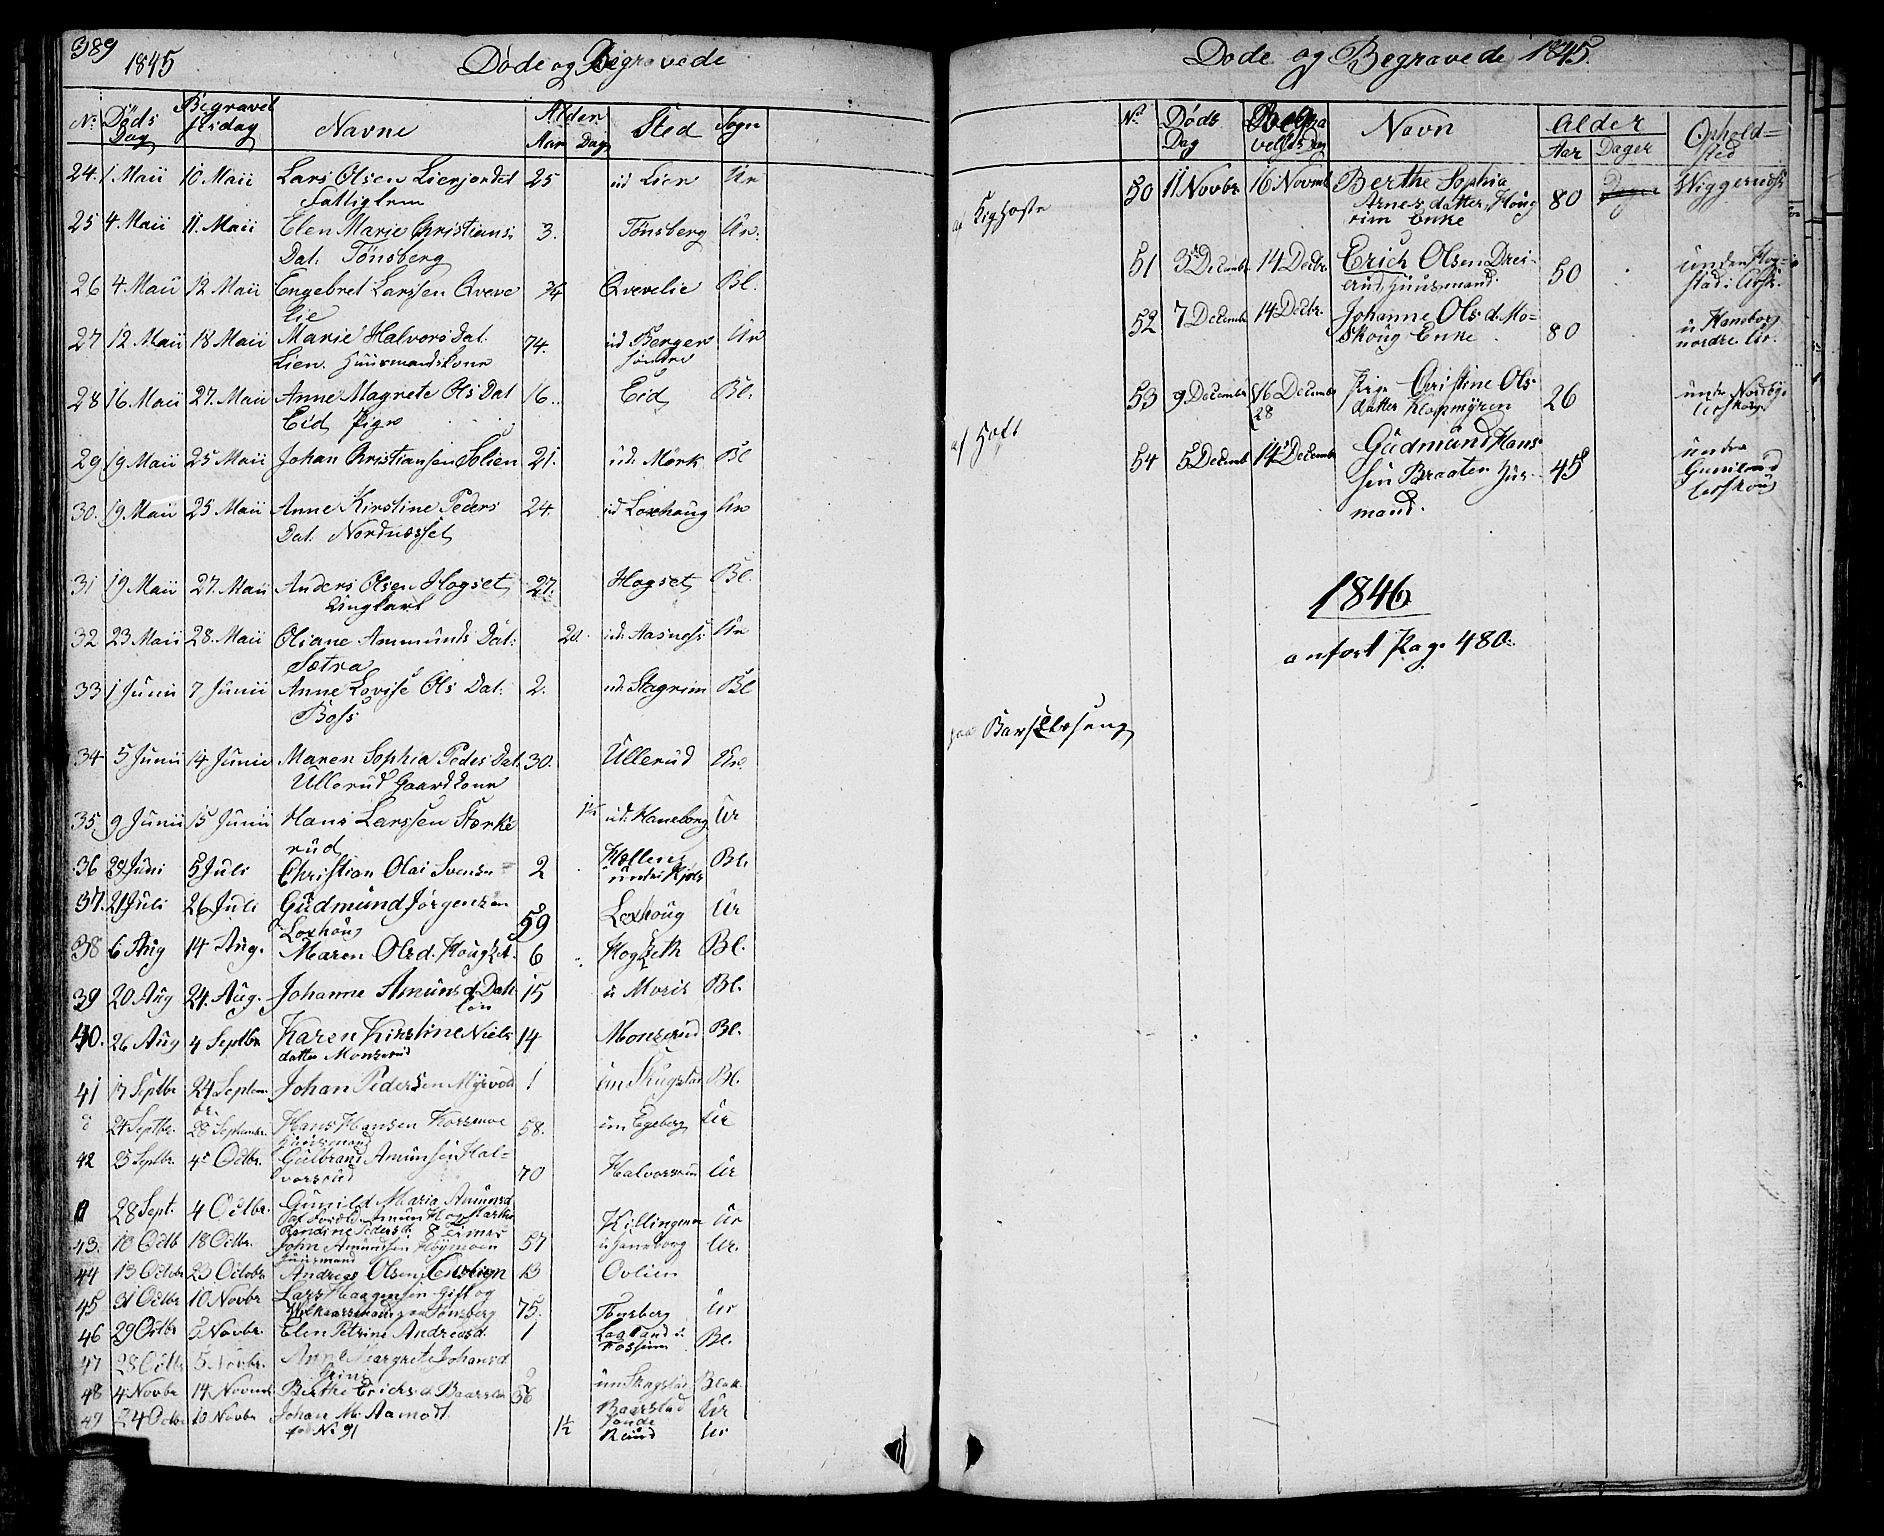 389
1845 Døde og Begravede
No. Døds Dag Begravelsesdag Navne Alder Aar Dag Sted Sogn
24. 1. Maii 10 Maii Lars Olsen Lierjordet 25 ud Lien Ur
Fattiglem
25 4. Maii 11. Maii Elen Marie Christians: 3. Tønsberg Ur.
Dat. Tønsberg
26 4. Maii 12 Maii Engebret Larssen Qveve 3/4 Qvevelie Bl.
lie
27 12 Maii 18 Maii Marie Halvors Dat. 74. ud Berger Ur
Lien. Huusmandskone søndre
28 16. Maii 27. Maii Anne Magrete Ols Dat 16. Eid Bl.
Eid Pige
29 19 Maii 25 Maii Johan Christiansen Solien 21. ud. Mørk Bl
30. 19 Maii 25 Maii Anne Kirstine Peders 24. ud Loxhaug Ur
Dat. Nordnæsset
31 19 Maii 27. Maii Anders Olsen Hogset 27. Hogset Bl.
Ungkarl
32 23 Maii 28. Maii Oliane Ammunds Dat: ud. Aasnæss Ur
Sætra
33 1 Junii 7 Junii Anne Lovise Ols Dat: 2. ud. Stagrim Bl
Boss
34 5 Junii 14 Junii Maren Sophia Peders Dat. 30. Ullerud Ur.
Ullerud Gaardkone
35 9 Junii 15 Junii Hans Larssen Stærke ud. Haneborg Ur
rud
36 29 Juni 5 Juli Christian Olai Svens 2 under Bl.
37. 21 Juli 26 Juli Gudmund Jørgensen 59 Loxhoug Ur
Loxhoug
38 6 Aug 14 Aug. Maren Olsd. 6 Bl.
39 20 Aug 24. Aug. Johanne Amunsd. 15 Bl.
40. 26 Aug 4 Septbr Karen Kirstine Niels 14 Monserud Bl.
datter Monserud
41 17 Septbr 24 Septem Johan Pedersen Myrvold 1 un Skugstad Bl.
br.
24 Septbr. 28 September Hans Hansen Korsmoe 58. un Egeberg Ur
Huusmand
42 25 Septbr. 4 Octbr. Gulbrand Amunsen Hal= 70 Halvorsrud Ur
vorsrud
28 Sept. 4 Octbr. Gunild Maria Amunsd Killingmoe Ur
43. 10 Octb 18 Octbr. John Amundsen Høymoen 57 u Haneborg Ur.
Huusmand
44 13 Octobr 23 Octobr Andreas Olsen 13 Ovlien
45 31 Octbr 10 Novbr Lars Haagensen Gift og 75. Tønsberg Ur
Tønsberg
46 29 Octbr 5 Novbr. Elen Petrine Andreasd. 1 Laaland u Bl.
Fossum
47 28 Octbr 5 Novbr. Anne Margrete Johansd
48 4 Novbr 14 Novemb Berthe Erichsd. 56 un Skugstad Blak.
49 24 Octbr 10 Novbr Johan M. Aamodt 1½ Ur
No 91
Døde og Begravede 1845.
No Døds Dag Navn Alder Aar Dager Ophold=sted
50 11 Novbr. 16 Novmb Berthe Sophia 80 Wiggernæss
af Kighoste Arnes datter, Houg
rim Enke
51 3 Decembr 14 Decbr. Erich Olsen Drei= 50 under Hog=
erud Huusmand stad i Ursk.
52 7 Decembr 14 Decbr. Johanne Ols d. Mo= 80 u Haneborg
skoug Enke nordre Ur.
53 9 Decembr 16 Decembr Pige Christine Ols 26 under Nordby
28 datter Klopmyren Urskoug
af Gift
54 5 Decemb 14 Decembr Gudmund Hans 45 under
sen Braaten Hus= Gunilrud
mand. Urskoug
1846
anført Pag. 480.
paa Barselseng